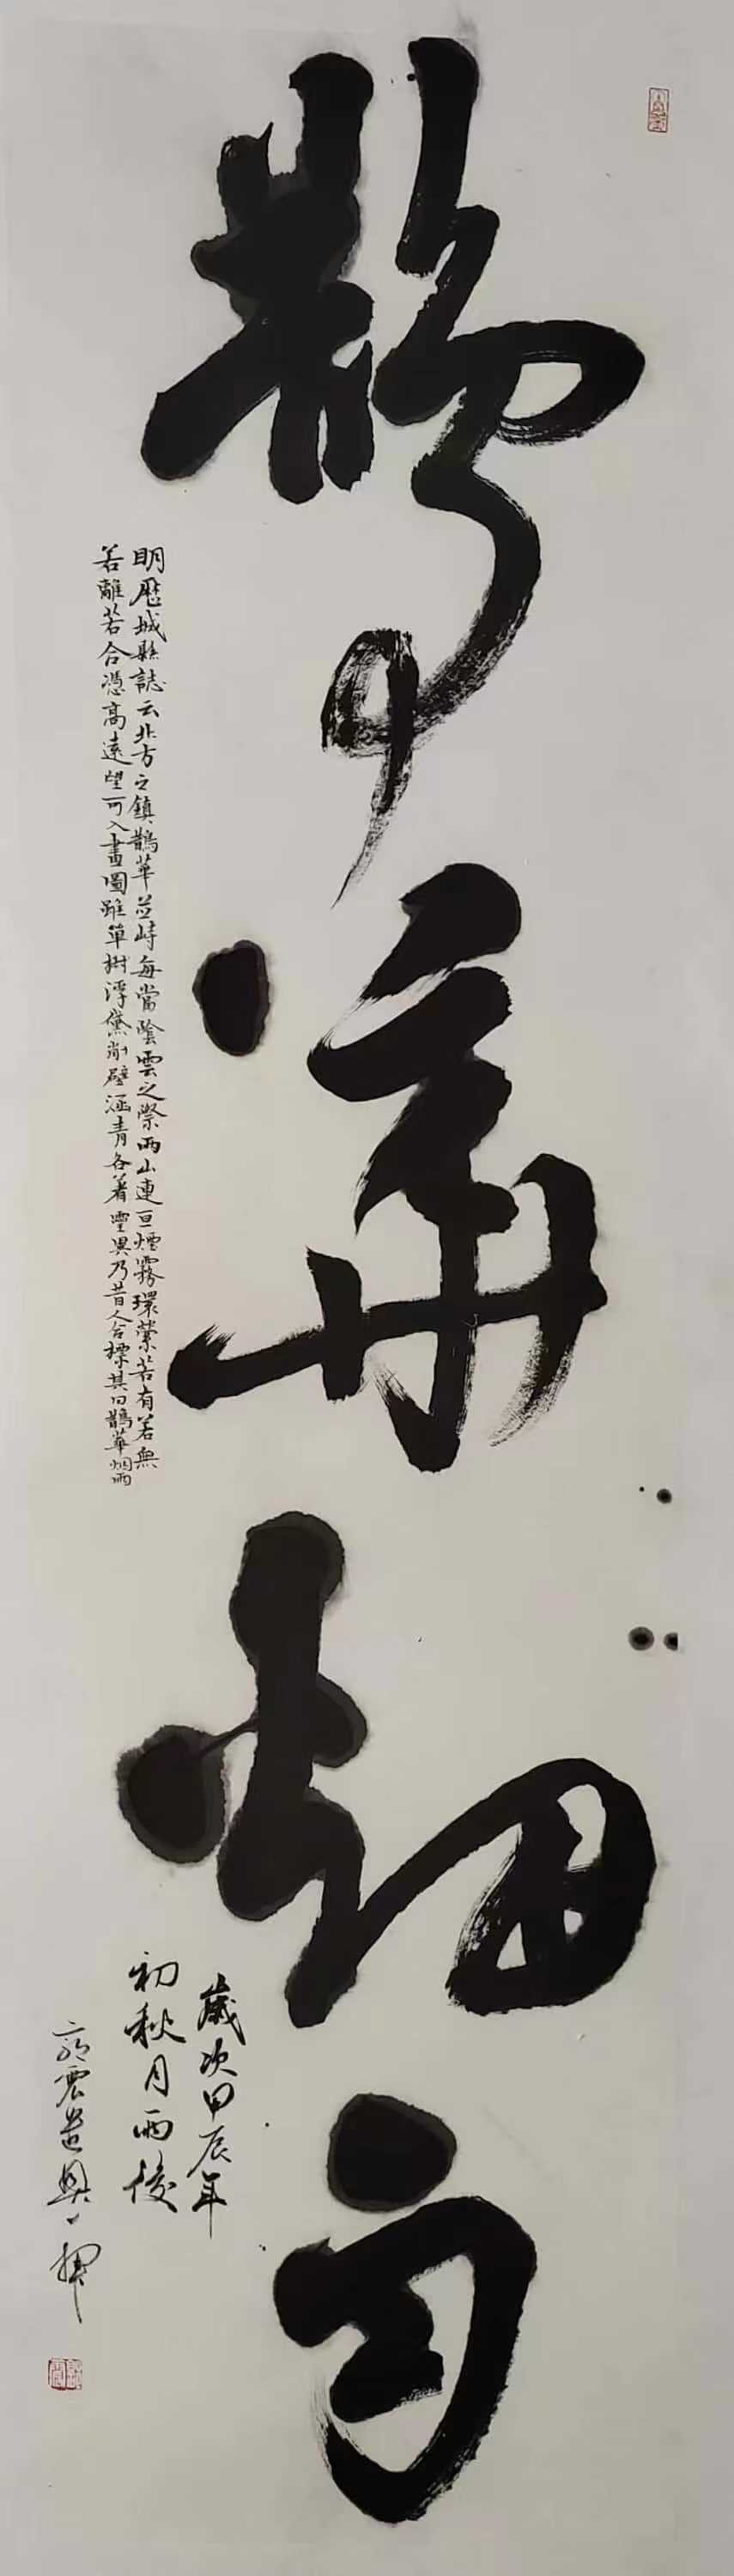 鵲華烟雨
明歷城縣誌云北方之鎮鵲華並峙每當陰雲之際兩山連亘煙霧環縈若有若無
若離若合憑高遠望可入畫圖雖單樹浮黛削壁涵青各著靈異乃昔人合標其曰鵲華烟雨
歲次甲辰年
初秋月雨後
震遣興一揮